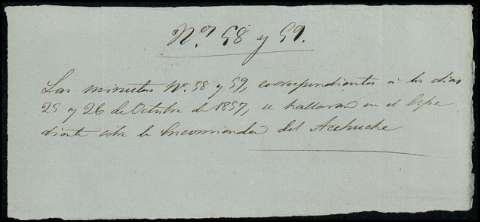 N.os 58 y 59.
Las minutas Nos. 58 y 59, correspondientes á los dias
25 y 26 de Octubre de 1857, se hallaran en el Espe
diente sobre la Encomienda del Acehuche